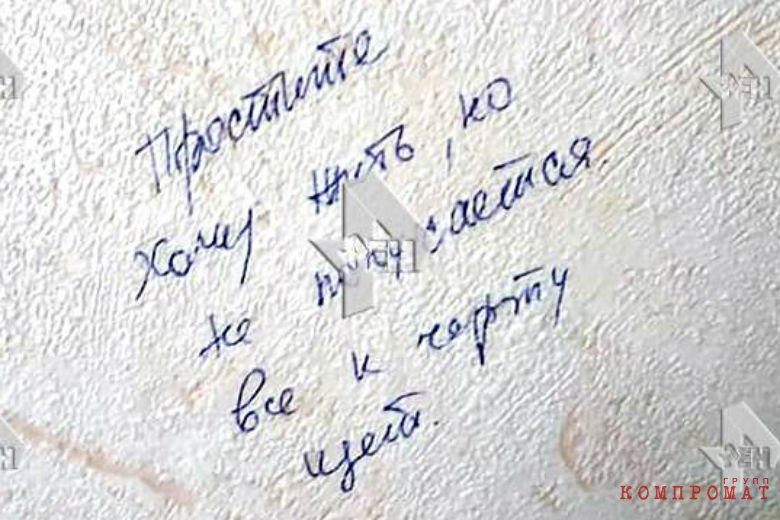 Простите
хочу жить, но
не получается.
все к черту
идет.
РЕН
РЕН
ГРУПП
КОМПРОМАТ